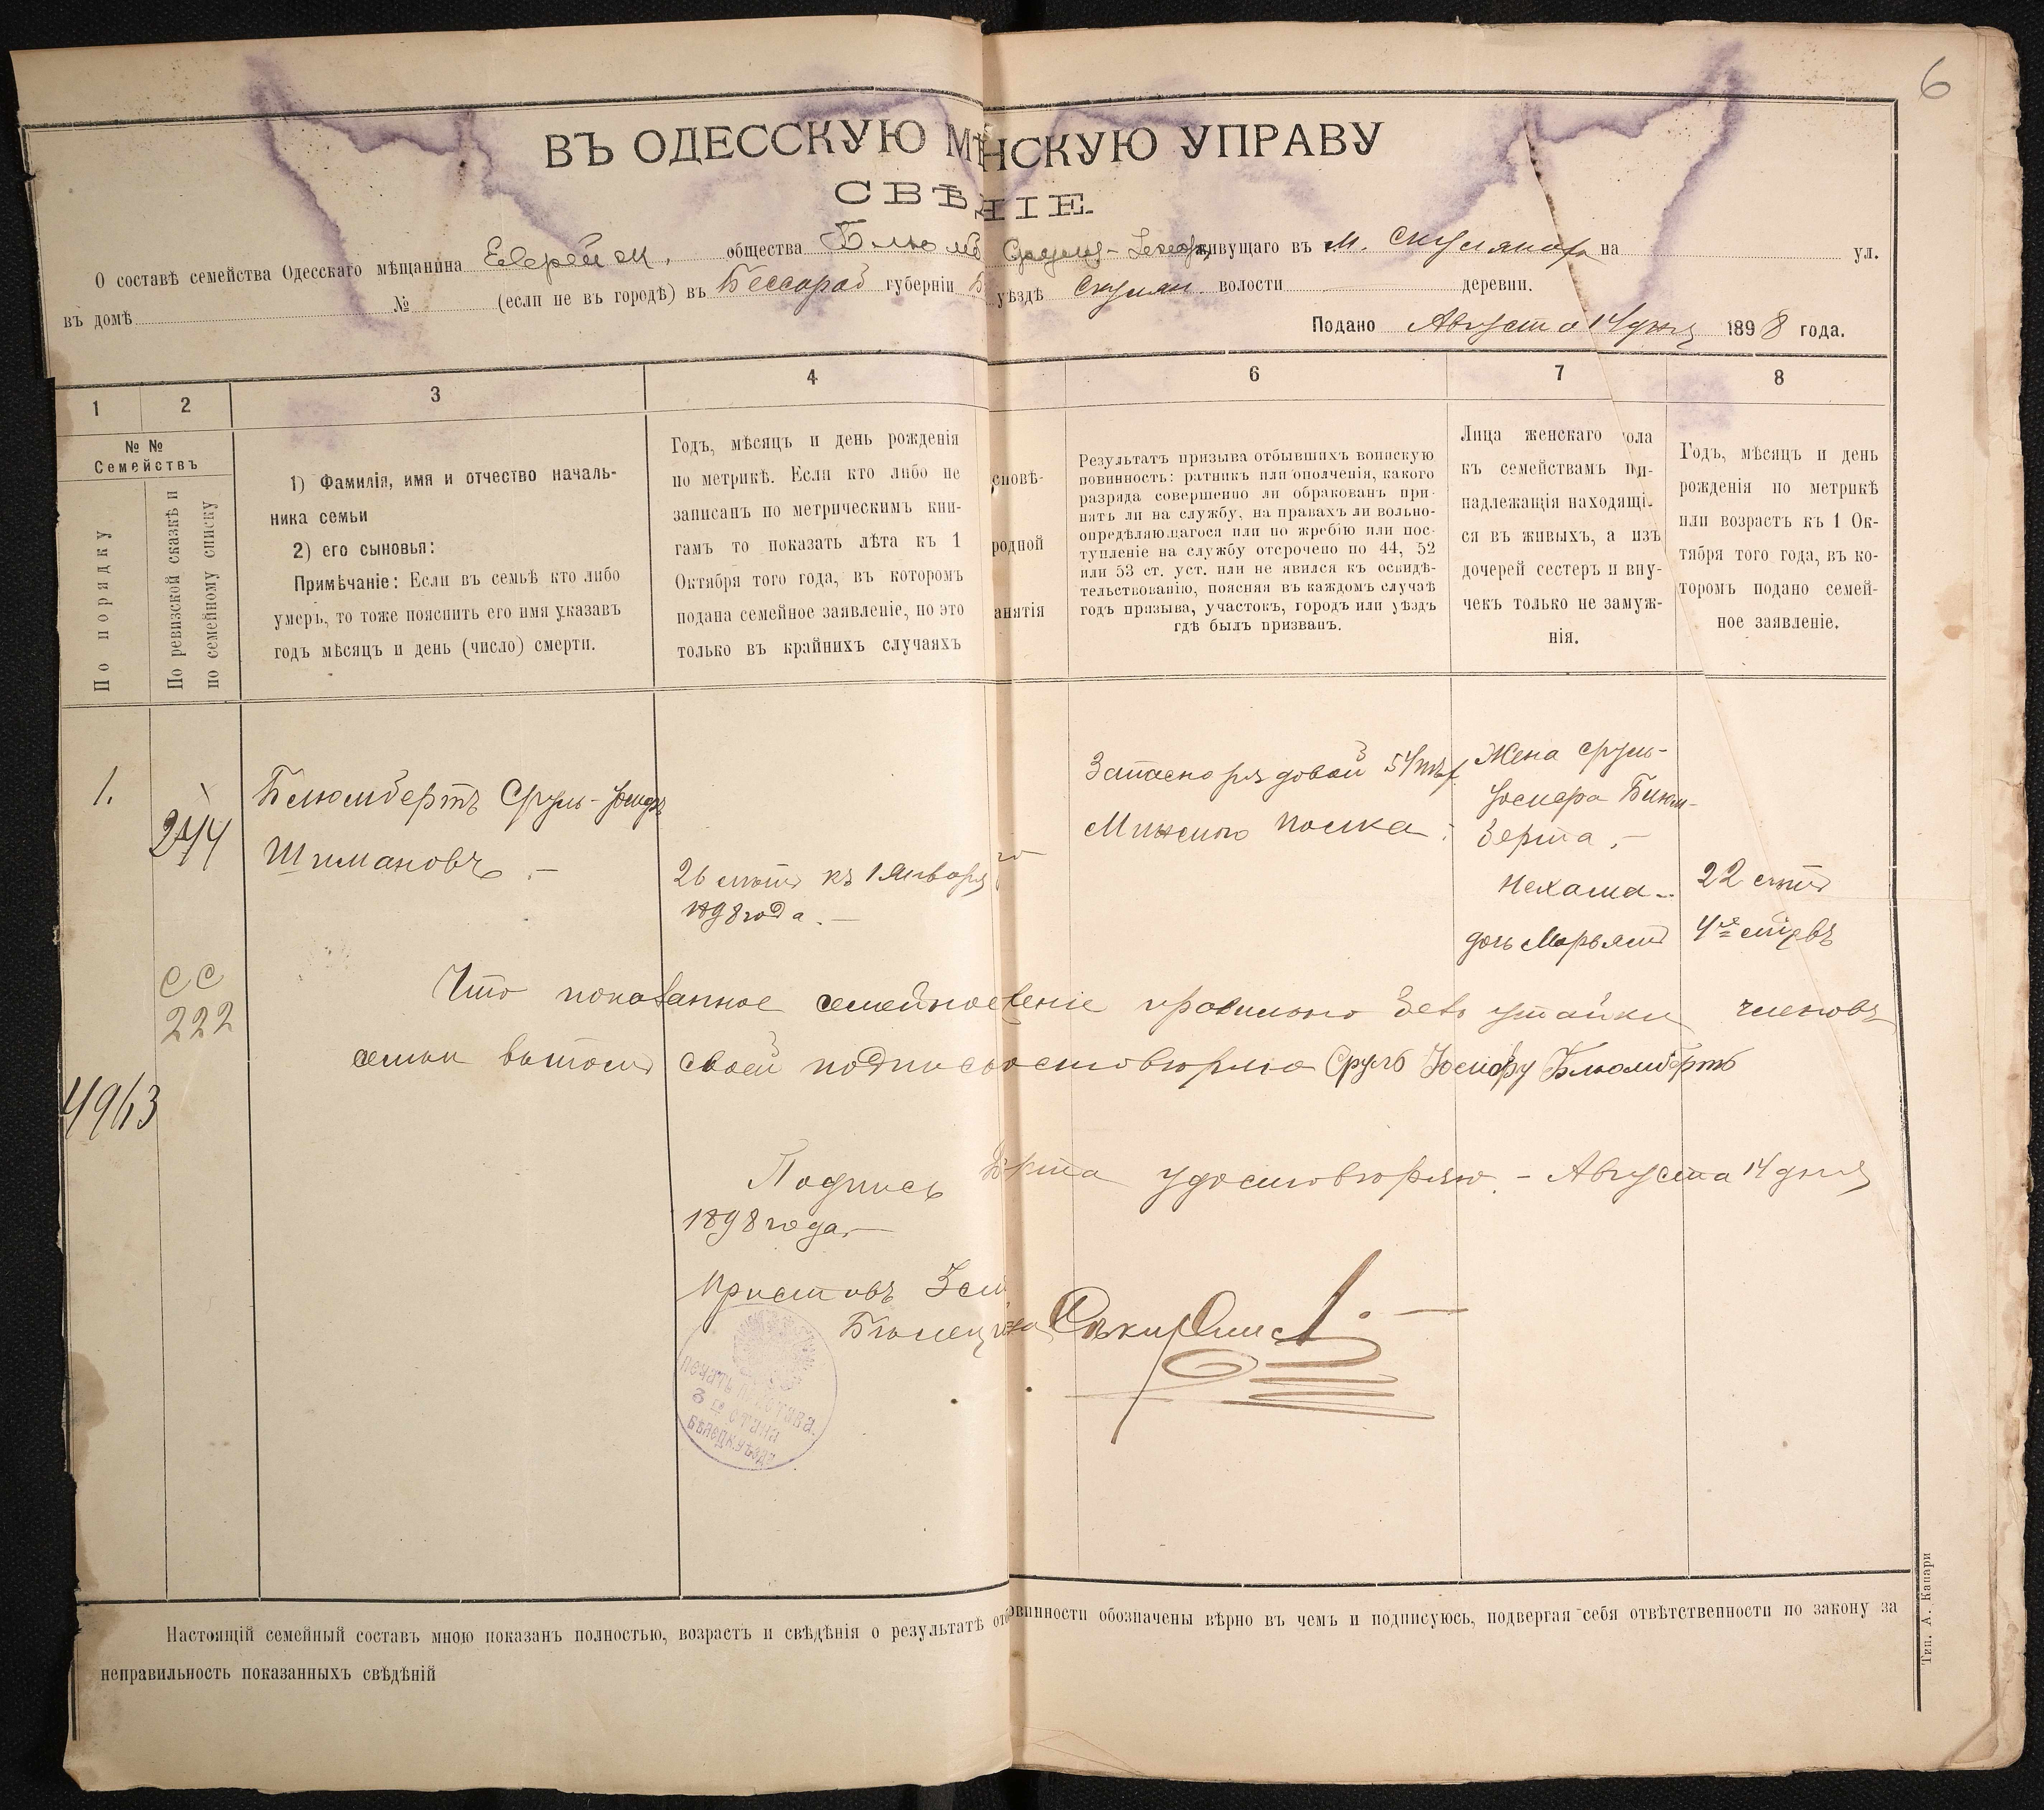 6
ВЪ ОДЕССКУЮ МѢ НСКУЮ УПРАВУ
СВѢ НІЕ.
О составѣ семейства Одесскаго мѣщанина Еврейск. общества Блюмб живущаго въ м. Скулянах на ул.
въ домѣ № (если не въ городѣ) въ Бессараб губерніи Б уѣздѣ Скулян волости деревни.
Подано Августа 14 дня 1898 года.
1 2 3 4 6 7 8
№ №
Семействъ
По порядку
По ревизской сказкѣ и
по семейному списку
1) Фамилія, имя и отчество началь-
ника семьи
2) его сыновья:
Примѣчаніе: Если въ семьѣ кто либо
умеръ, то тоже пояснить его имя указавъ
годъ мѣсяцъ и день (число) смерти.
Годъ, мѣсяцъ и день рожденія
по метрикѣ. Если кто либо не
записанъ по метрическимъ кни-
гамъ то показать лѣта къ 1
Октября того года, въ которомъ
подана семейное заявленіе, но это
только въ крайнихъ случаяхъ
сповѣ-
родной
анятія
Результатъ призыва отбывшихъ воинскую
повинность: ратникъ или ополченія, какого
разряда совершенно ли обракованъ при-
нятъ ли на службу, на правахъ ли вольно-
опредѣляющагося или по жребію или пос-
тупленіе на службу отсрочено по 44, 52
или 53 ст. уст. или не явился къ освидѣ-
тельствованію, поясняя въ каждомъ случаѣ
годъ призыва, участокъ, городъ или уѣздъ
гдѣ былъ призванъ.
Лица женскаго пола
къ семействамъ при-
надлежащія находящі-
ся въ живыхъ, а изъ
дочерей сестеръ и вну-
чекъ только не замуж-
нія.
Годъ, мѣсяцъ и день
рожденія по метрикѣ
или возрастъ къ 1 Ок-
тября того года, въ ко-
торомъ подано семей-
ное заявленіе.
1.
244
Блюмбертъ Сруль-Іосифъ
Шимановъ. –
26 лѣтъ къ 1 Января
1898 года. –
Запасно рядовой 54 пѣх.
Минского полка
Жена Сруль-
Іосифа Блюм-
берта. –
Нехама –
22 лѣтъ
дочь Марьямъ
СС
222
Что показанное семейное правильно безъ утайки членовъ
семьи въ томъ своей Сруль Іосифъ Блюмбертъ
4963
Подпись удостовѣряю. – Августа 14 дня
1898 года. –
Приставъ 3
печать пристава
3 го стана
Бѣлецк. уѣзда
Настоящій семейный составъ мною показанъ полностью, возрастъ и свѣдѣнія о результатѣ от овинности обозначены вѣрно въ чемъ и подписуюсь, подвергая себя отвѣтственности по закону за
неправильность показанныхъ свѣдѣній
Тип. А. Капари